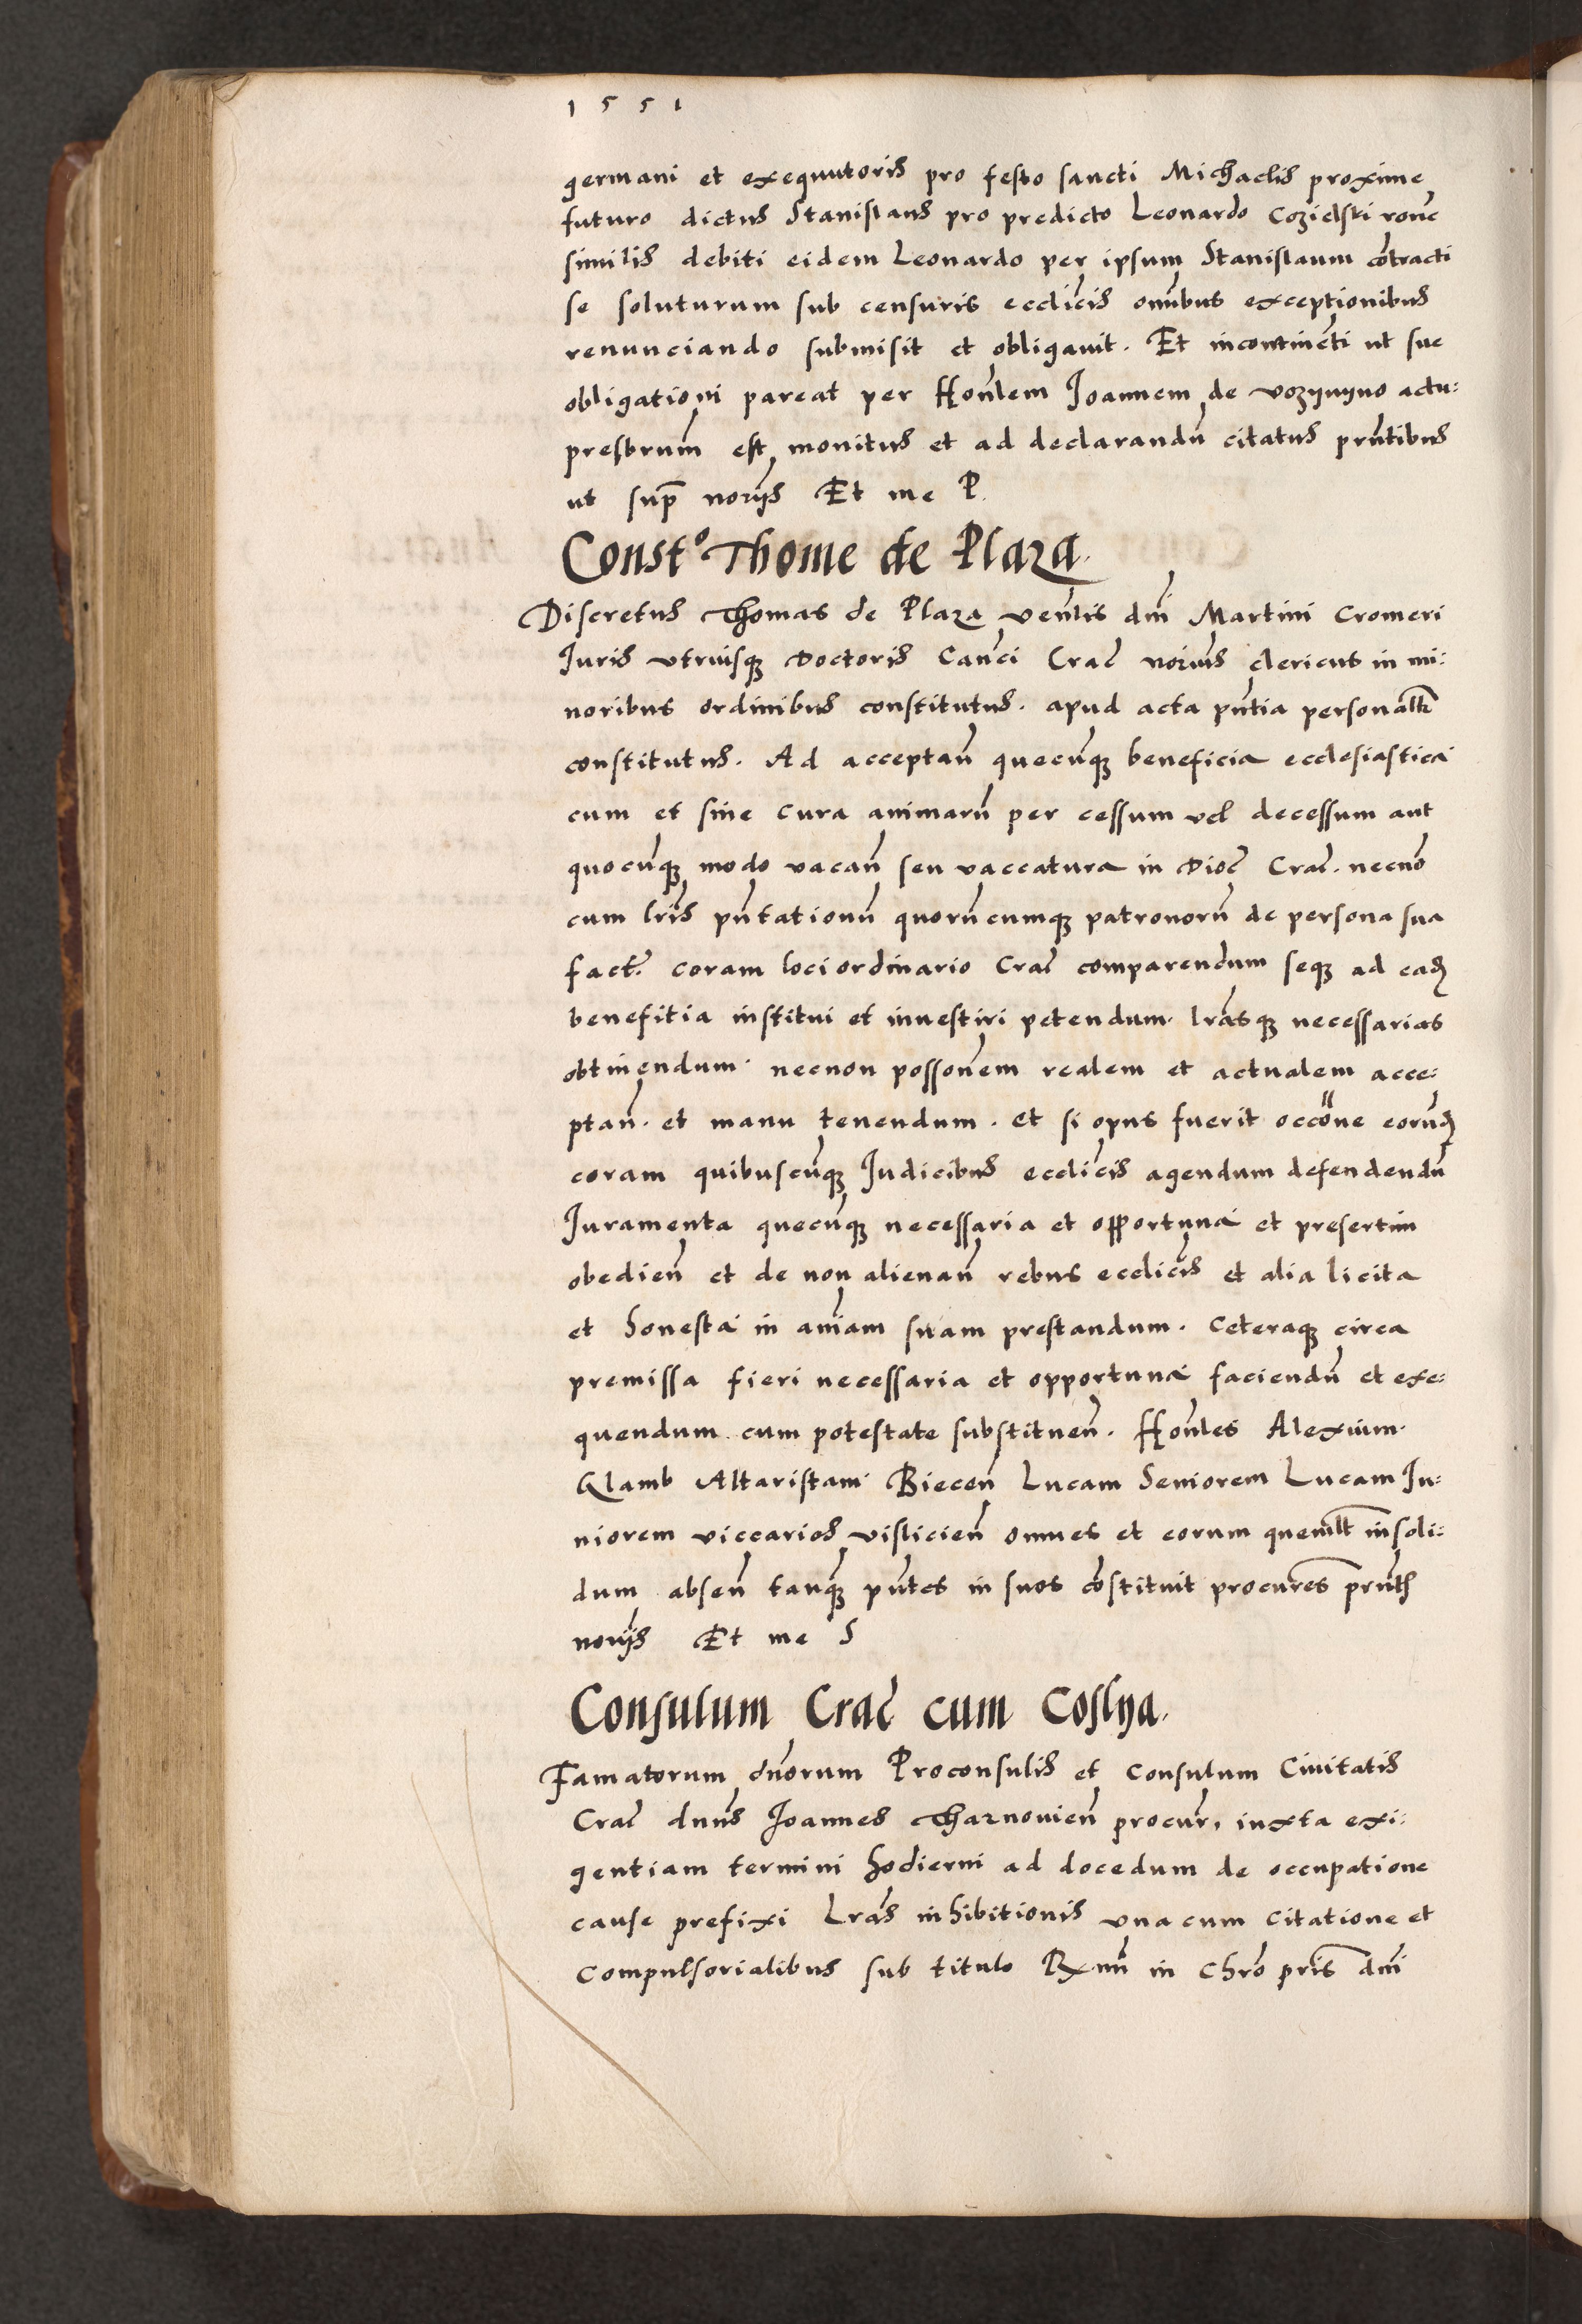 1551
germani et exequutoris pro festo sancti Michaelis proxime
futuro dictus Stanislaus pro predicto Leonardo Cozielski rone
similis debiti eidem Leonardo per ipsum Stanislaum cotracti
se soluturum sub censuris ecclicis omibus exceptionibus
renunciando submisit et obligavit. Et incontineti ut sue
obligationi pareat per Honlem Joannem de vozijnijno actu:
presbrum est monitus et ad declarandu citatus prntibus
ut sup norijs Et me P.
Const° Thome de Plaza.
Discretus Thomas de Plaza venlis dni Martini Cromeri
Iuris utriusq Doctoris Canci Crac norius clericus in mi:
noribus ordinibus constitutus. apud acta pntia personallr
constitutus. Ad acceptan quecuq beneficia ecclesiastica
cum et sine cura animaru per cessum vel decessum aut
quocuq modo vacan seu vaccatura in Dioc Crac. necno
cum lris pntationu quorucumq patronoru de persona sua
fact. coram loci ordinario Crac comparendum seq ad ead
benefitia institui et investiri petendum. lrasq necessarias
obtinendum. necnon possonem realem et actualem acce:
ptan. et manu tenendum. et si opus fuerit occone eorud
coram quibuscuq Judicibus ecclicis agendum defendendu
Iuramenta quecuq necessaria et opportuna et presertim
obedien et de non alienan rebus ecclicis et alia licita
et honesta in aniam suam prestandum. Ceteraq circa
premissa fieri necessaria et opportuna faciendu et exe:
quendum cum potestate substituen. Honles Alexium
Klamb Altaristam Biecen Lucam Seniorem Lucam Ju:
niorem viccarios vislicien omnes et eorum quemllt insoli:
dum absen tanq pntes in suos costituit procures prntb
norijs Et me S
Consulum Crac cum Coslya.
Famatorum dnorum Proconsulis et Consulum Civitatis
Crac dnus Joannes Tharnovien procur, iuxta exi:
gentiam termini hodierni ad docedum de occupatione
cause prefixi Lras inhibitionis una cum citatione et
compulsorialibus sub titulo Rxmi in Chro pris dni